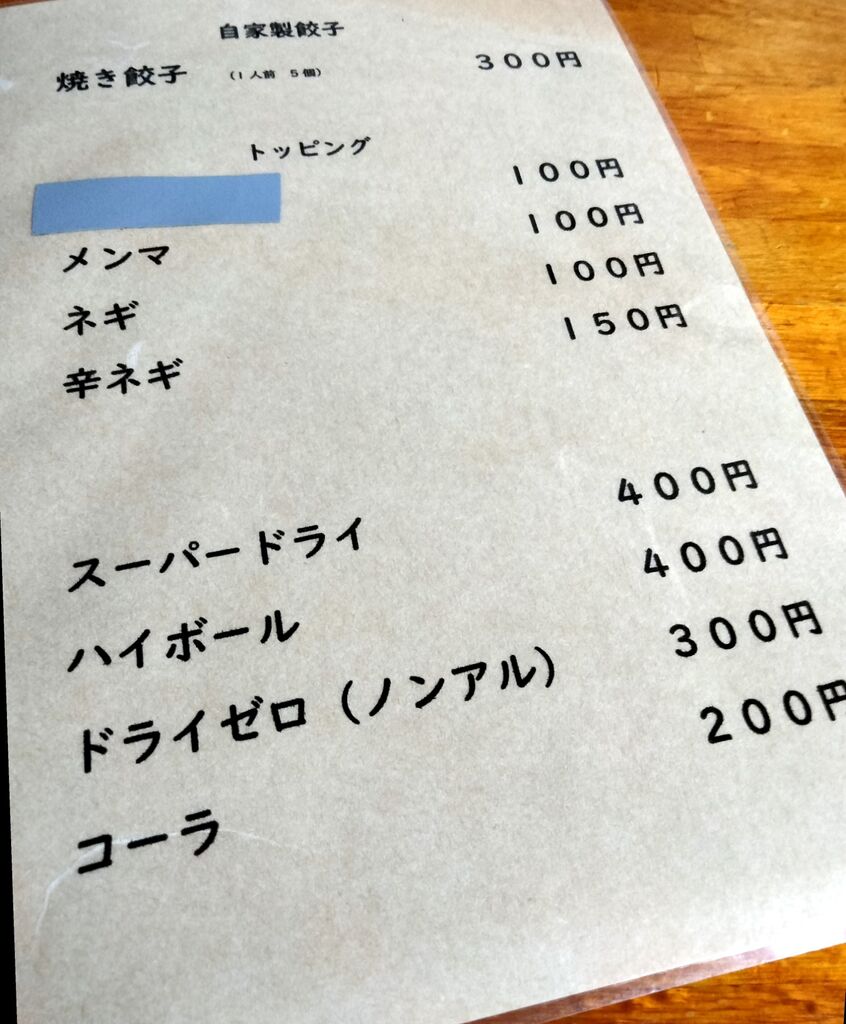 自家製餃子
焼き餃子 (1人前 5個) 300円
トッピング
100円
メンマ 100円
ネギ 100円
辛ネギ 150円
スーパードライ 400円
ハイボール 400円
ドライゼロ(ノンアル) 300円
コーラ 200円